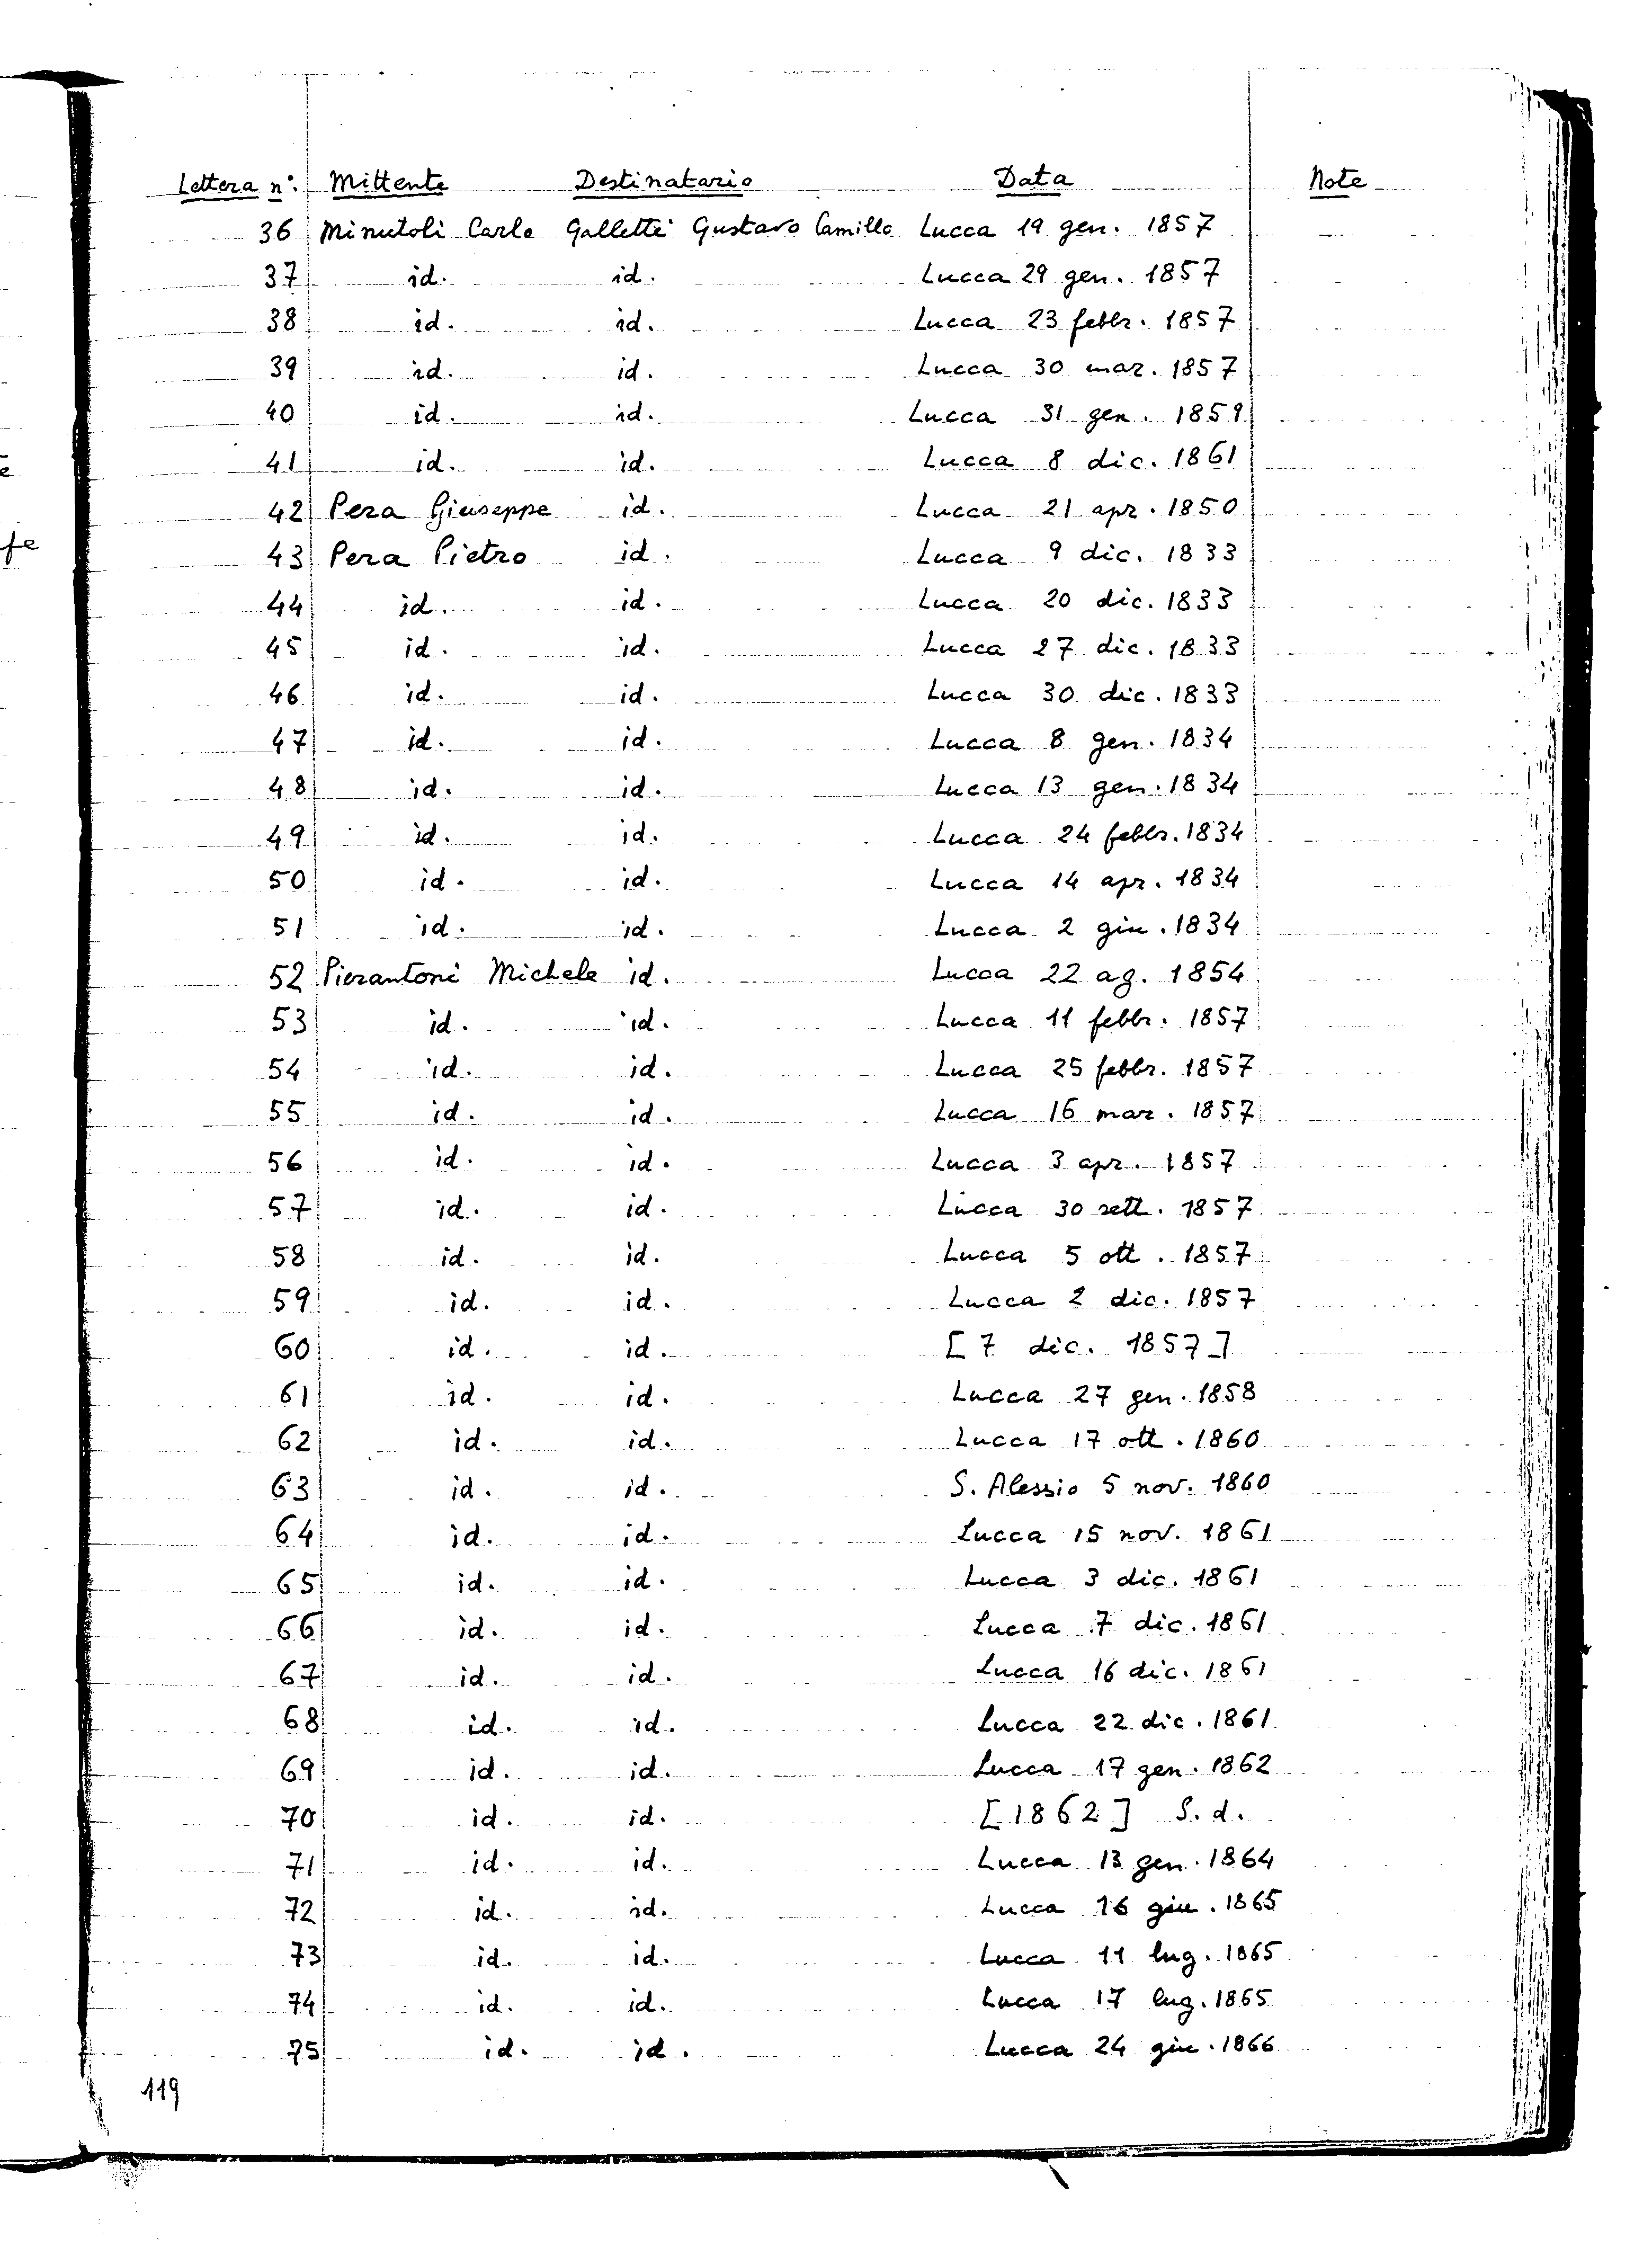 Lettera n°. Mittente Destinatario Data Note
36 Minutoli Carlo Galletti Gustavo Camillo Lucca 19 gen. 1857
37 id. id. Lucca 29 gen. 1857
38 id. id. Lucca 23 febbr. 1857
39 id. id. Lucca 30 mar. 1857
40 id. id. Lucca 31 gen. 1859
41 id. id. Lucca 8 dic. 1861
42 Pera Giuseppe id. Lucca 21 apr. 1850
43 Pera Pietro id. Lucca 9 dic. 1833
44 id. id. Lucca 20 dic. 1833
45 id. id. Lucca 27 dic. 1833
46 id. id. Lucca 30 dic. 1833
47 id. id. Lucca 8 gen. 1834
48 id. id. Lucca 13 gen. 1834
49 id. id. Lucca 24 febbr. 1834
50 id. id. Lucca 14 apr. 1834
51 id. id. Lucca 2 giu. 1834
52 Pierantoni Michele id. Lucca 22 ag. 1854
53 id. id. Lucca 11 febbr. 1857
54 id. id. Lucca 25 febbr. 1857
55 id. id. Lucca 16 mar. 1857
56 id. id. Lucca 3 apr. 1857
57 id. id. Lucca 30 sett. 1857
58 id. id. Lucca 5 ott. 1857
59 id. id. Lucca 2 dic. 1857
60 id. id. [7 dic. 1857]
61 id. id. Lucca 27 gen. 1858
62 id. id. Lucca 17 ott. 1860
63 id. id. S. Alessio 5 nov. 1860
64 id. id. Lucca 15 nov. 1861
65 id. id. Lucca 3 dic. 1861
66 id. id. Lucca 7 dic. 1861
67 id. id. Lucca 16 dic. 1861
68 id. id. Lucca 22 dic. 1861
69 id. id. Lucca 17 gen. 1862
70 id. id. [1862] S. d.
71 id. id. Lucca 13 gen. 1864
72 id. id. Lucca 16 giu. 1865
73 id. id. Lucca 11 lug. 1865
74 id. id. Lucca 17 lug. 1865
75 id. id. Lucca 24 giu. 1866
119